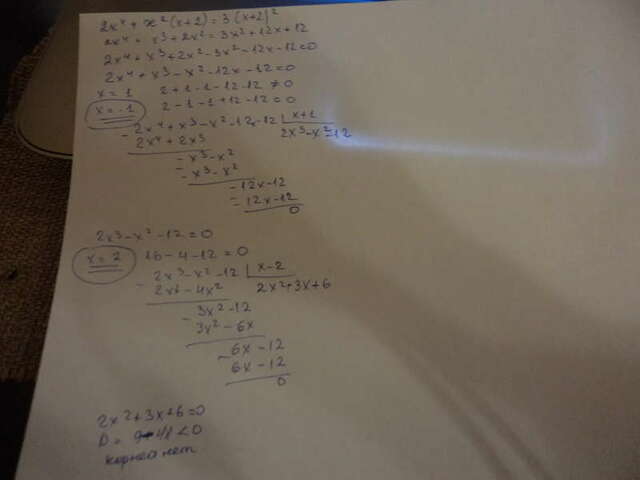 2x⁴ + x²(x+2) = 3(x+2)²
2x⁴ + x³ + 2x² = 3x² + 12x + 12
2x⁴ + x³ + 2x² - 3x² - 12x - 12 = 0
2x⁴ + x³ - x² - 12x - 12 = 0
x = 1 2 + 1 - 1 - 12 - 12 ≠ 0
x = -1 2 - 1 - 1 + 12 - 12 = 0
- 2x⁴ + x³ - x² - 12x - 12 | x+1
2x⁴ + 2x³ 2x³ - x² - 12
- - x³ - x²
- x³ - x²
- - 12x - 12
- 12x - 12
0
2x³ - x² - 12 = 0
x = 2 16 - 4 - 12 = 0
- 2x³ - x² - 12 | x-2
2x³ - 4x² 2x² + 3x + 6
- 3x² - 12
3x² - 6x
- 6x - 12
6x - 12
0
2x² + 3x + 6 = 0
D = 9 - 48 < 0
корней нет